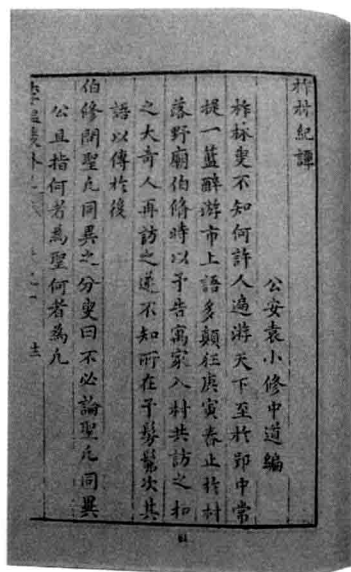 柞林紀譚
公安袁小修中道編
柞林叟不知何許人遍游天下至於郢中常
提一藍醉游市上語多顛狂庚寅春止於村
落野廟伯脩時以予告寓家入村共訪之扣
之大奇人再訪之遂不知所在予髣髴次其
語以傳於後
伯修問聖凡同異之分叟曰不必論聖凡同異
公且指何者為聖何者為凡